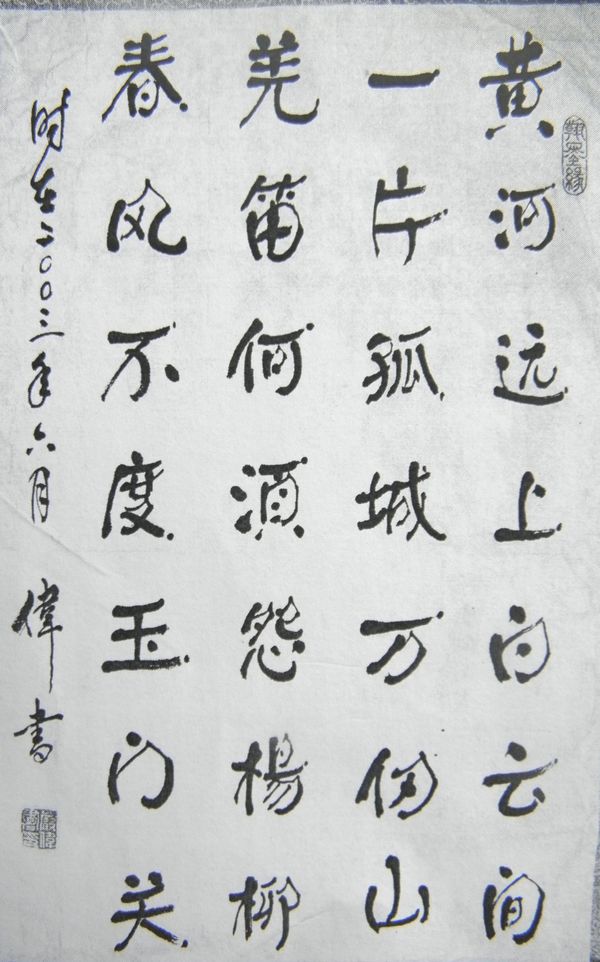 黄河远上白云间
一片孤城万仞山
羌笛何须怨楊柳
春风不度玉门关
时在二〇〇三年六月 偉書
翰墨缘